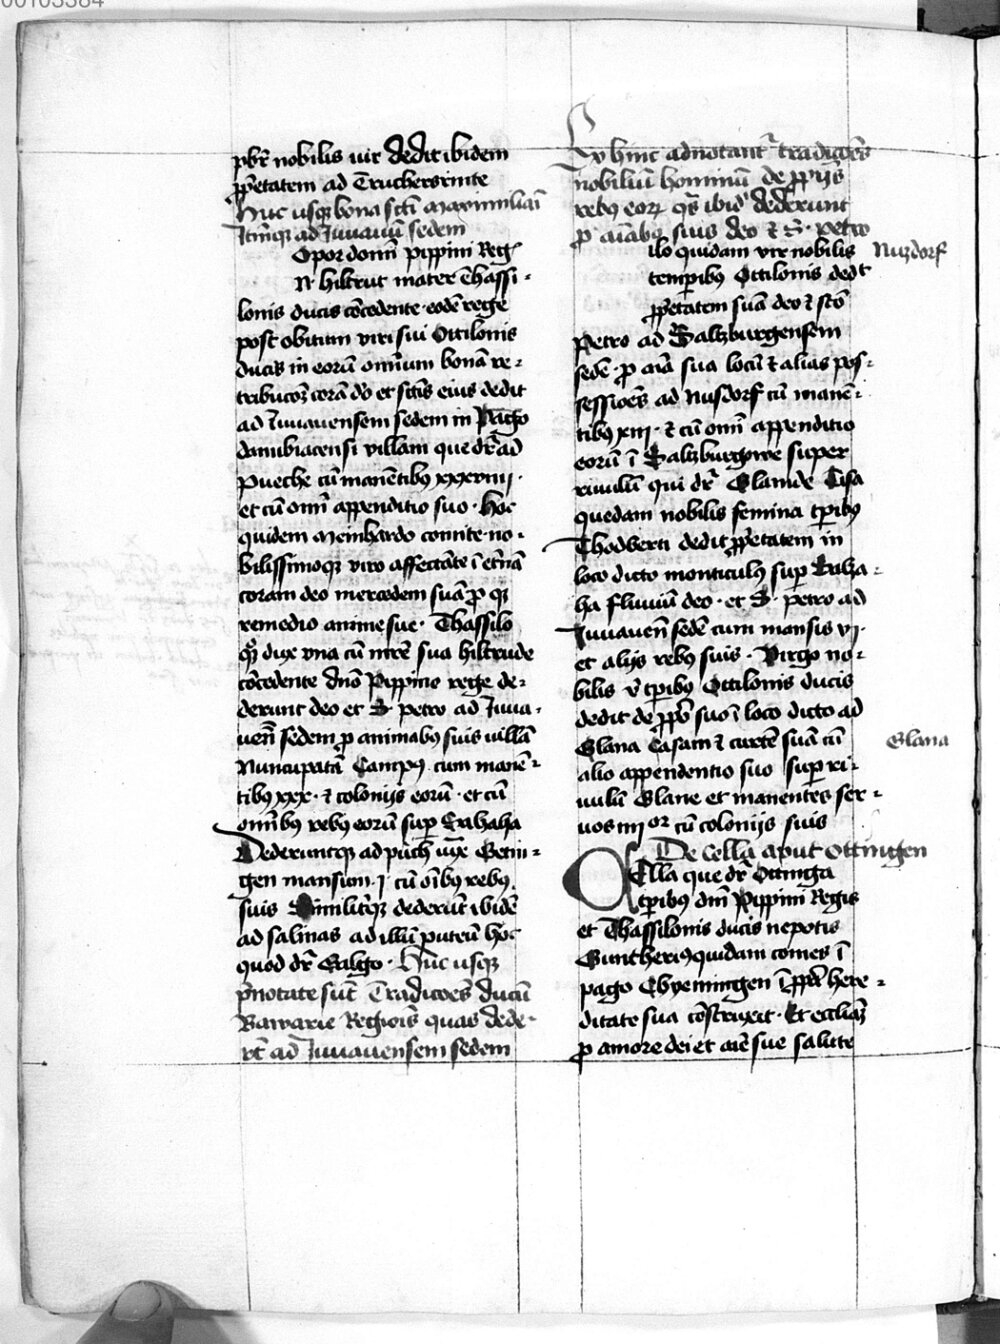 pbr nobilis uir dedit ibidem
ppetatem ad Truchersrinte
Huc usq bona scti Maximiliani
Itmq ad Iuuauu sedem
Opor domi Pippini Reg
hiltrut mater Thassi-
lonis ducis cocedente eode rege
post obitum viri sui Ottilonis
ducis in eoru omnium bona re-
tribucoz cora do et sctis eius dedit
ad Iuuauensem sedem in Pago
danubiacensi villam que dr ad
Pueche cu manetibus xxxviiii
et cu omi appenditio suo. Hoc
quidem Meinhardo comite no-
bilissimoq viro affectate i etna
coram deo mercedem sua p q
remedio anime sue. Thassilo
qq dux vna cu mre sua hiltrude
cocedente dno Pippino rege de-
derunt deo et S petro ad Iuua-
uen sedem p animabus suis villa
Nuncupata Campus cum mane-
tibus xxx. et colonijs eoru et cu
omibus rebus eoru sup Erahaha
Dederuntq ad puch iux Getin-
gen mansum j cu oibus rebus
suis Similiterq dederut ibide
ad salinas ad illu puteu hoc
quod dr Galgo. Huc usq
pnotate sut Tradicoes ducu
Bawarie Regiois quas dede-
rt ad Iuuauensem sedem
Ex hinc adnotant tradicoes
nobiliu hominu de ppijs
rebus eorz qs ibid dederunt
p aiabus suis deo et S. petro
ilo quidam vir nobilis
Nuzdorf
tempibus Ottilonis dedt
ppetatem sua deo et sto
Petro ad Saltzburgensem
sede p aia sua locu et alias pos-
sessioes ad Nusdorf cu mane-
tibus xiij. et cu omi appenditio
eoru i Saltzburgowe super
riuulu qui dr Glamde Tisa
quedam nobilis femina tpibus
Thodberti dedit ppetatem in
loco dicto monticulus sup Eraha-
ha fluuiu deo. et S. petro ad
Iuuauen sede cum mansis vj.
et alijs rebus suis. Virgo no-
bilis v tpibus Ottilonis ducis
dedit de ppo suo i loco dicto ad
Glana Casam et curte sua cu
Glana
alio appendentio suo super ri-
uulu Glane et manentes ser-
uos iiii or cu colonijs suis
De Cella aput Ottingen
Cella que dr Ottinga
tpibus dni Pippini Regis
et Thassilonis ducis nepotis
Guntherius quidam comes i
pago Chyemingen i ppa here-
ditate sua costruxit. Et eccliaz
p amore dei et aie sue salute